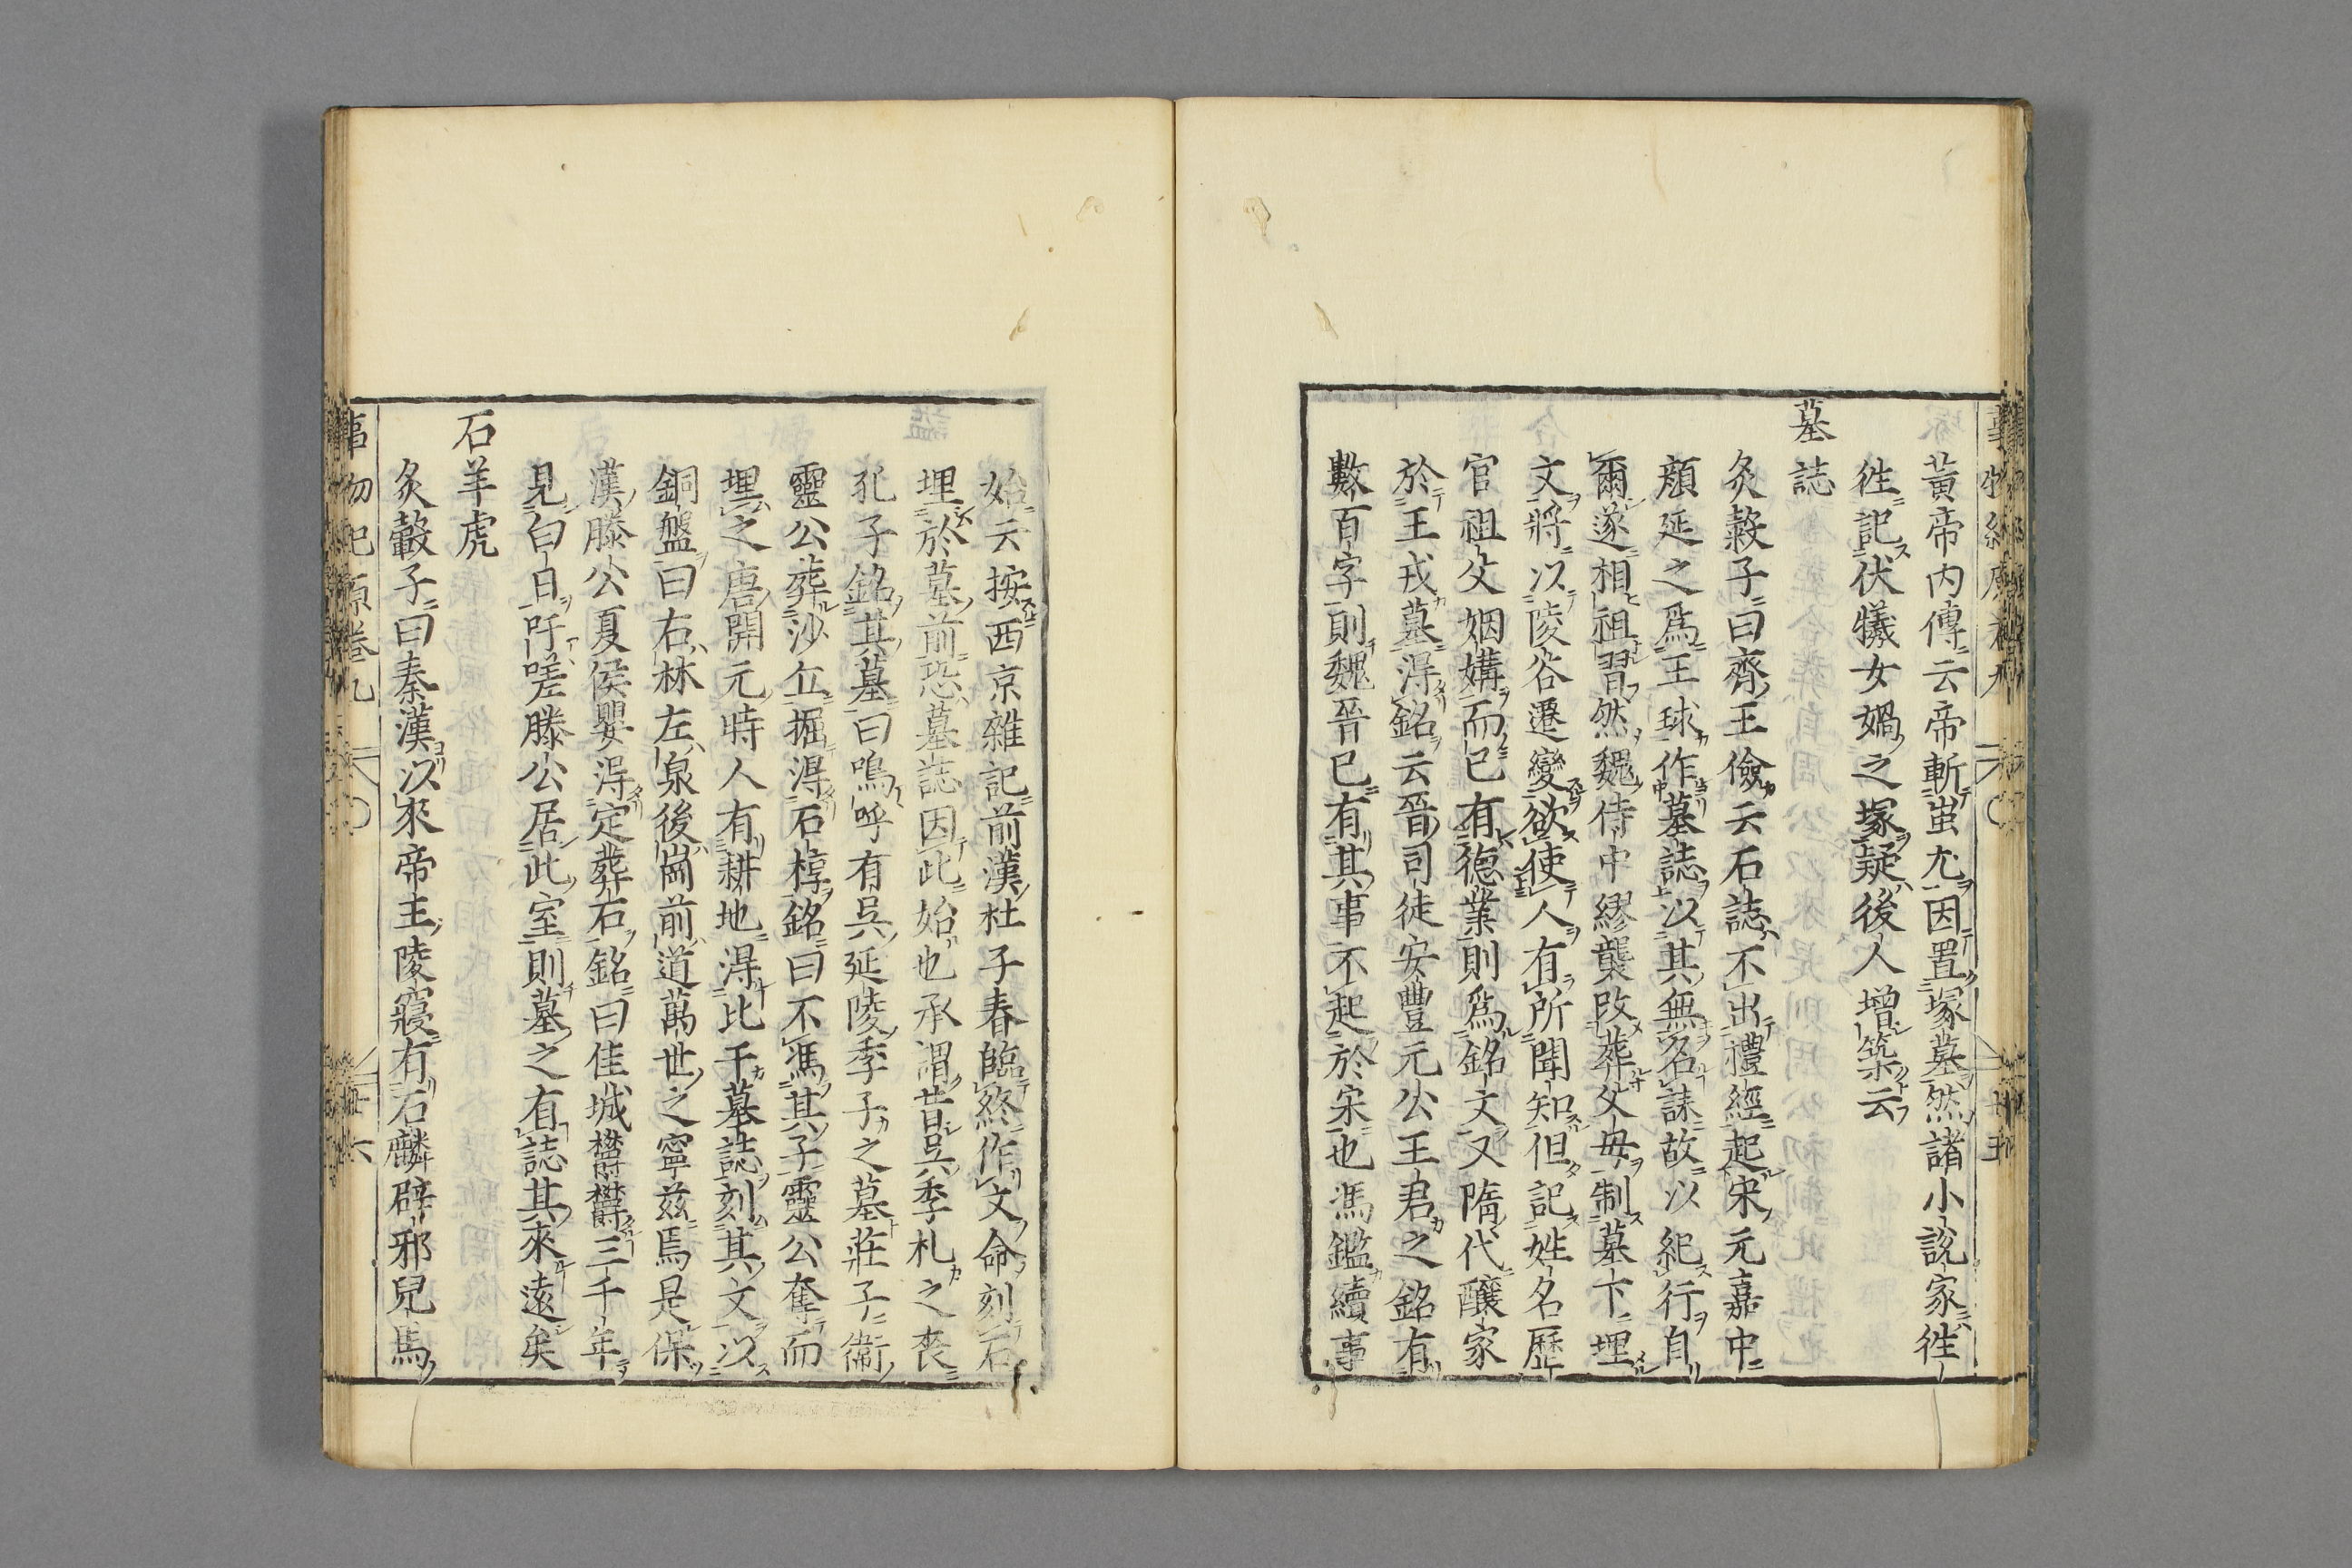 黃帝内傳云帝斬蚩尤因置塚墓然諸小說家徃
徃記伏犧女媧之塚疑後人增築云
墓誌
炙轂子曰齊王儉云石誌不出禮經起宋元嘉中
顔延之爲王球作墓誌以其無名誄故以紀行自
爾遂相祖習然魏侍中繆襲改葬父母制墓下埋
文將以陵谷遷變欲使人有所聞知但記姓名歷
官祖父姻媾而已有德業則爲銘文又隋代釀家
於王戎墓淂銘云晉司徒安豐元公王君之銘有
數百字則魏晉已有其事不起於宋也馮鑑續事
始云按西京雜記前漢杜子春臨終作文命刻石
埋於墓前恐墓誌因此始也承謂昔吳季札之丧
孔子銘其墓曰嗚呼有吳延陵季子之墓莊子衞
靈公葬沙丘掘淂石椁銘曰不馮其子靈公奪而
埋之唐開元時人有耕地淂比干墓誌刻其文以
銅盤曰右林左泉後崗前道萬世之寧兹焉是保
漢滕公夏侯嬰淂定葬石銘曰佳城欝欝三千年
見白日吁嗟滕公居此室則墓之有誌其來遠矣
石羊虎
炙轂子曰秦漢以來帝主陵寢有石麟辟邪兒馬
事物紀原卷九
六